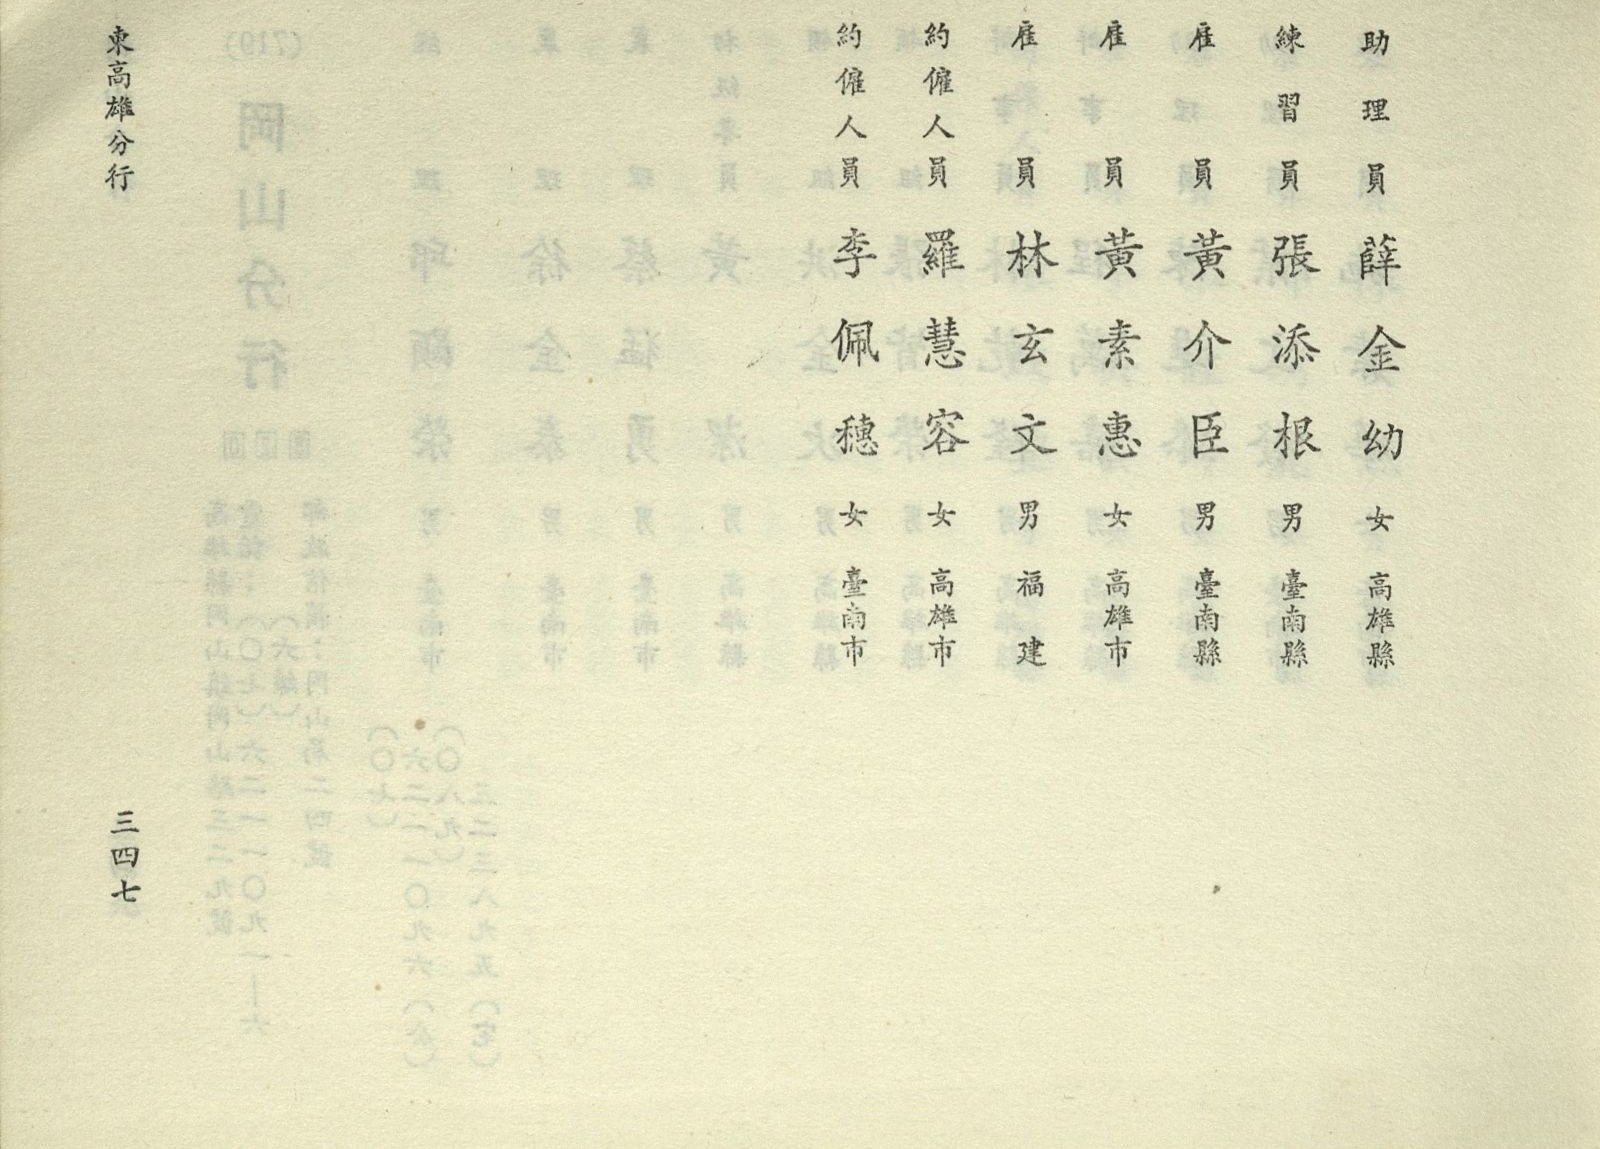 助理員 薛金幼 女 高雄縣
練習員 張添根 男 臺南縣
雇員 黃介臣 男 臺南縣
雇員 黃素惠 女 高雄市
雇員 林玄文 男 福建
約僱人員 羅慧容 女 高雄市
約僱人員 李佩穗 女 臺南市
東高雄分行 三四七